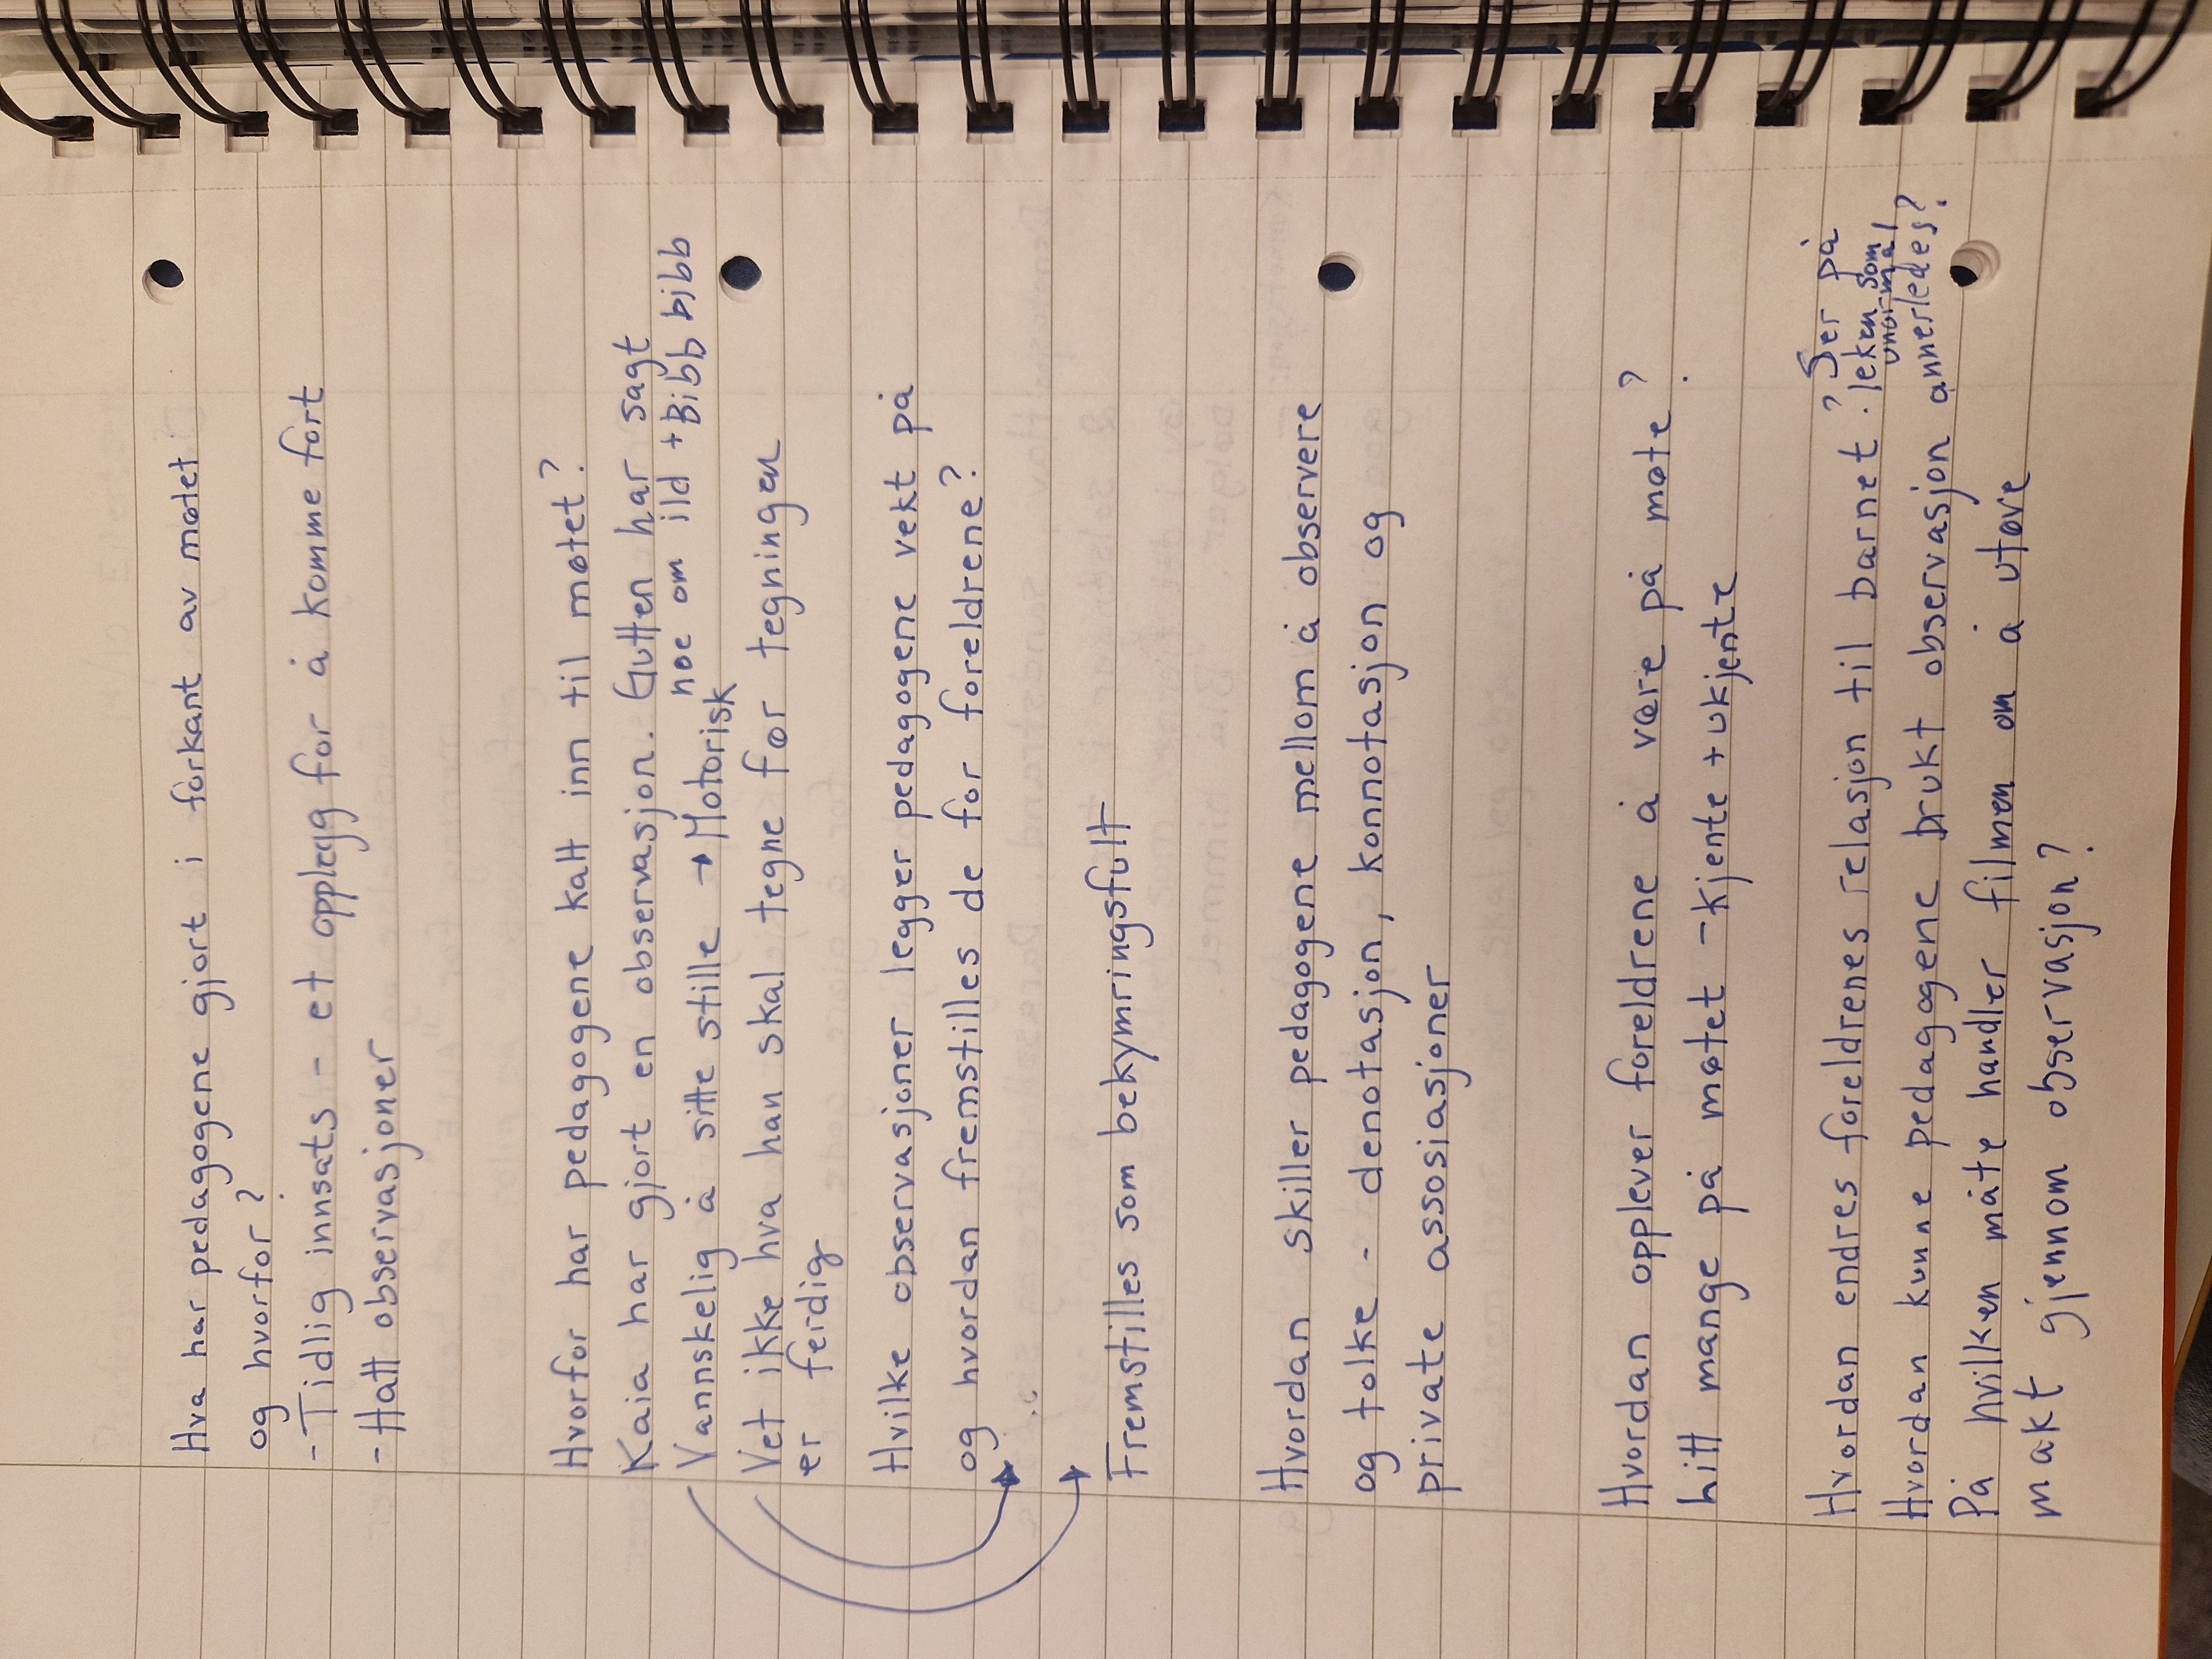 Hva har pedagogene gjort i forkant av møtet
og hvorfor?
- Tidlig innsats - et opplegg for å komme fort
- Hatt observasjoner
Hvorfor har pedagogene kalt inn til møtet?
Kaia har gjort en observasjon. Gutten har sagt
noe om ild + Bibb bibb
Vannskelig å sitte stille → Motorisk
Vet ikke hva han skal tegne før tegningen
er ferdig
Hvilke observasjoner legger pedagogene vekt på
og hvordan fremstilles de for foreldrene?
Fremstilles som bekymringsfullt
Hvordan skiller pedagogene mellom å observere
og tolke - denotasjon, konnotasjon og
private assosiasjoner
Hvordan opplever foreldrene å være på møte?
hitt mange på møtet - kjente + ukjente
Hvordan endres foreldrenes relasjon til barnet? Ser på
leken som
unormal
Hvordan kunne pedagogene brukt observasjon annerledes?
På hvilken måte handler filmen om å utøve
makt gjennom observasjon?